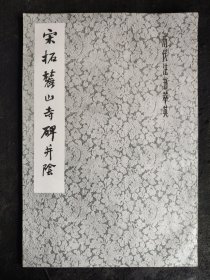 宋拓麓山寺碑并陰
歷代法書萃英